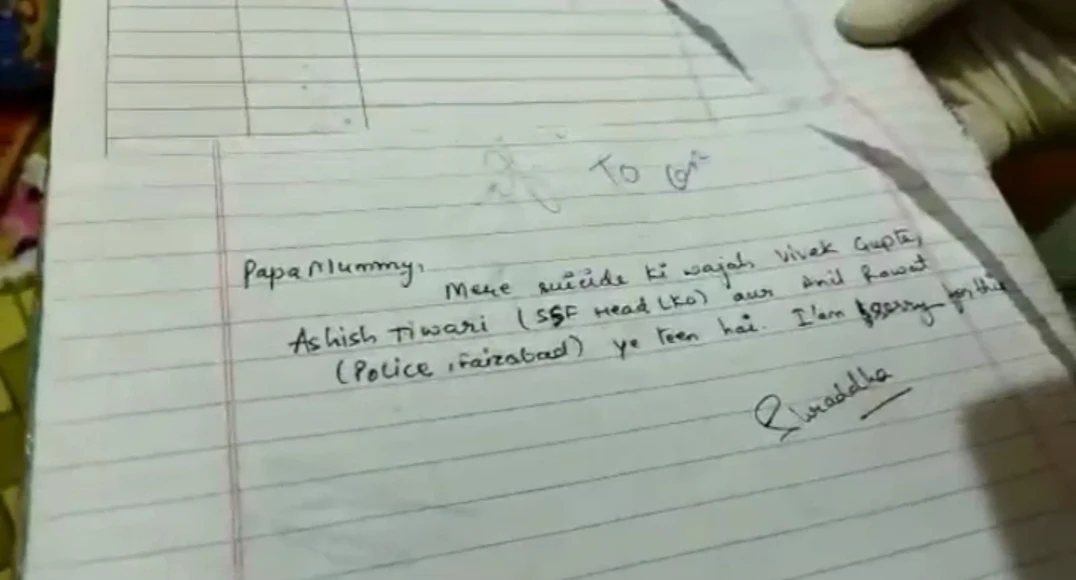 To
Papa Mummy,
Mere suicide ki wajah Vivek Gupta,
Ashish Tiwari (SSF Head LKO) aur Anil Rawat
(Police, Faizabad) ye teen hai. I'am sorry for this
Shraddha